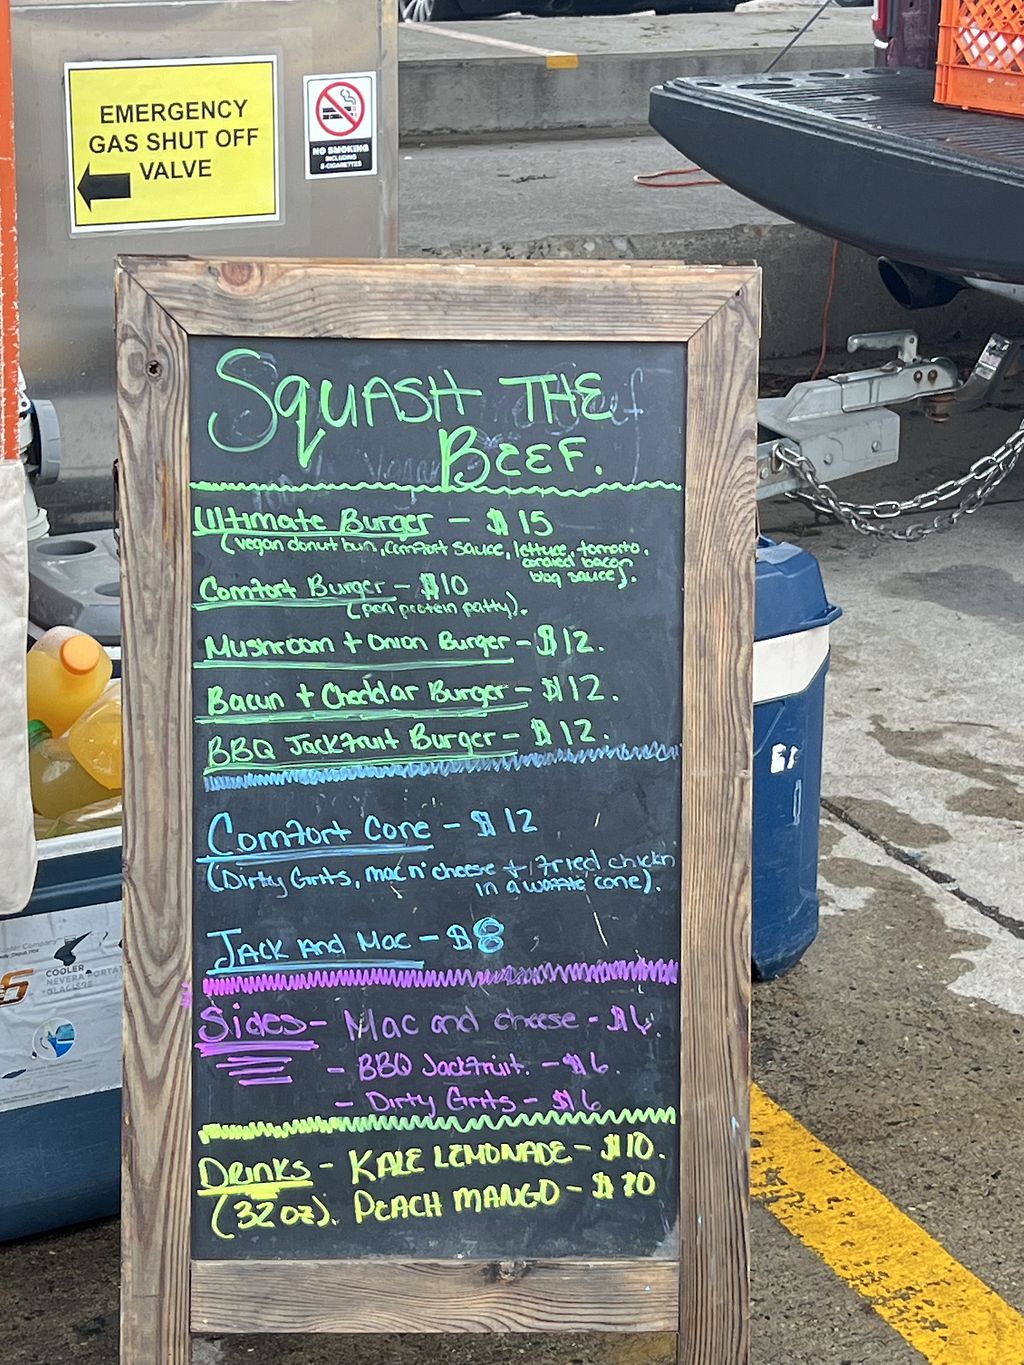 EMERGENCY
GAS SHUT OFF
VALVE
NO SMOKING
INCLUDING
E-CIGARETTES
SQUASH THE
BEEF.
Ultimate Burger - $15
(vegan donut bun, comfort sauce, lettuce, tomato,
candied bacon
bbq sauce).
Comfort Burger - $10
(pea protein patty).
Mushroom + Onion Burger - $12.
Bacun + Cheddar Burger - $12.
BBQ Jackfruit Burger - $12.
Comfort Cone - $12
(Dirty Grits, mac n' cheese + fried chick'n
in a waffle cone).
Jack And Mac - $8
Sides - Mac and cheese - $6.
- BBQ Jackfruit. - $6.
- Dirty Grits - $6
Drinks - KALE LEMONADE - $10.
(32 oz). PEACH MANGO - $10
COOLER